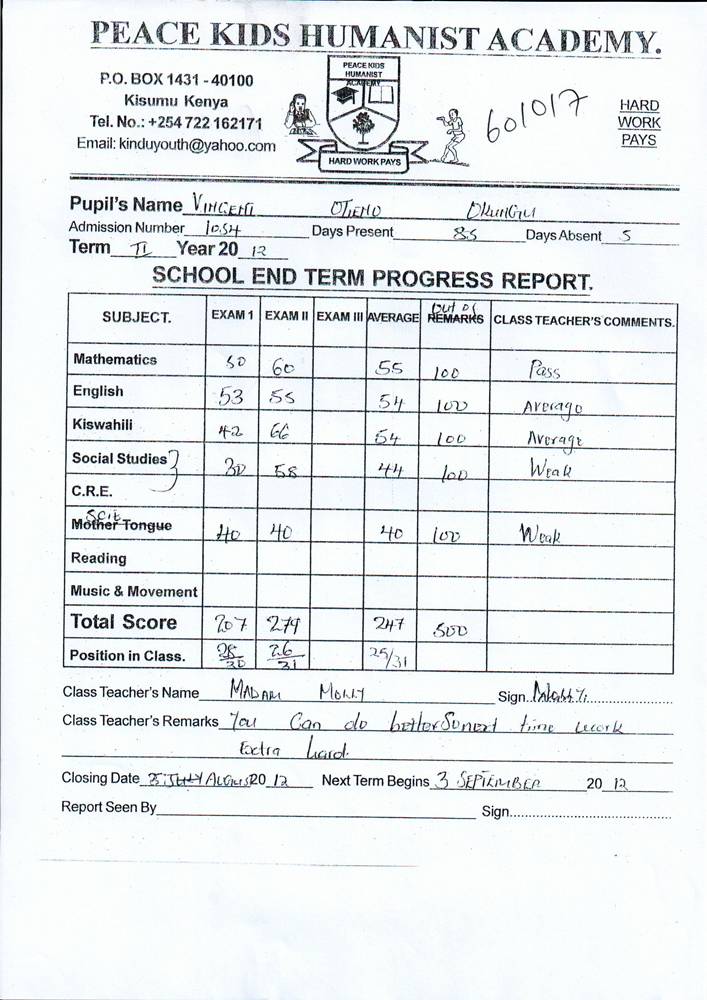 PEACE KIDS HUMANIST ACADEMY.
P.O. BOX 1431 - 40100
Kisumu Kenya
Tel. No.: +254 722 162171
Email: kinduyouth@yahoo.com
PEACE KIDS
HUMANIST
ACADEMY
HARD WORK PAYS
601017
HARD
WORK
PAYS
Pupil's Name VINCENT OTIENO
Admission Number 1054 Days Present 85 Days Absent 5
Term II Year 20 12
SCHOOL END TERM PROGRESS REPORT.
SUBJECT. EXAM 1 EXAM II EXAM III AVERAGE Out of REMARKS CLASS TEACHER'S COMMENTS.
Mathematics 50 60 55 100 Pass
English 53 55 54 100 Average
Kiswahili 42 66 54 100 Average
Social Studies 30 58 44 100 Weak
C.R.E.
Mother Tongue 40 40 40 100 Weak
Reading
Music & Movement
Total Score 207 279 247 500
Position in Class. 28/30 26/31 25/31
Class Teacher's Name MADAM MOLLY Sign.
Class Teacher's Remarks You can do better So next time work
Extra hard.
Closing Date AUGUST 20 12 Next Term Begins 3 SEPTEMBER 20 12
Report Seen By Sign